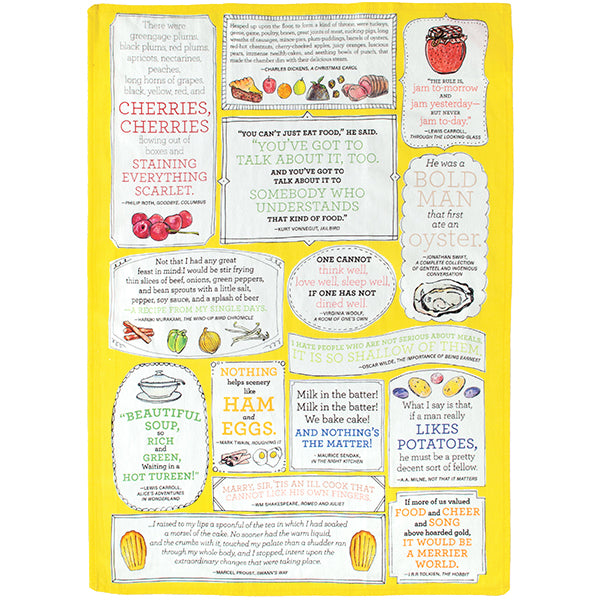 There were
greengage plums,
black plums, red plums,
apricots, nectarines,
peaches,
long horns of grapes,
black, yellow, red, and
CHERRIES,
CHERRIES
flowing out of
boxes and
STAINING
EVERYTHING
SCARLET.
—PHILIP ROTH, GOODBYE, COLUMBUS
Heaped up upon the floor, to form a kind of throne, were turkeys,
geese, game, poultry, brawn, great joints of meat, sucking-pigs, long
wreaths of sausages, mince-pies, plum-puddings, barrels of oysters,
red-hot chestnuts, cherry-cheeked apples, juicy oranges, luscious
pears, immense twelfth-cakes, and seething bowls of punch, that
made the chamber dim with their delicious steam.
—CHARLES DICKENS, A CHRISTMAS CAROL
"THE RULE IS,
jam to-morrow
AND
jam yesterday—
BUT NEVER
jam to-day."
—LEWIS CARROLL,
THROUGH THE LOOKING-GLASS
"YOU CAN'T JUST EAT FOOD," HE SAID.
"YOU'VE GOT TO
TALK ABOUT IT, TOO.
AND YOU'VE GOT TO
TALK ABOUT IT TO
SOMEBODY WHO
UNDERSTANDS
THAT KIND OF FOOD."
—KURT VONNEGUT, JAILBIRD
He was a
BOLD
MAN
that first
ate an
oyster.
—JONATHAN SWIFT,
A COMPLETE COLLECTION
OF GENTEEL AND INGENIOUS
CONVERSATION
Not that I had any great
feast in mind.I would be stir frying
thin slices of beef, onions, green peppers,
and bean sprouts with a little salt,
pepper, soy sauce, and a splash of beer
—A RECIPE FROM MY SINGLE DAYS.
—HARUKI MURAKAMI, THE WIND-UP BIRD CHRONICLE
ONE CANNOT
think well,
love well, sleep well,
IF ONE HAS NOT
dined well.
—VIRGINIA WOOLF,
A ROOM OF ONE'S OWN
I HATE PEOPLE WHO ARE NOT SERIOUS ABOUT MEALS.
IT IS SO SHALLOW OF THEM.
—OSCAR WILDE, THE IMPORTANCE OF BEING EARNEST
"BEAUTIFUL
SOUP,
so
RICH
and
GREEN,
Waiting in a
HOT TUREEN!"
—LEWIS CARROLL,
ALICE'S ADVENTURES
IN WONDERLAND
NOTHING
helps scenery
like
HAM
and
EGGS.
—MARK TWAIN, ROUGHING IT
Milk in the batter!
Milk in the batter!
We bake cake!
AND NOTHING'S
THE MATTER!
—MAURICE SENDAK,
IN THE NIGHT KITCHEN
What I say is that,
if a man really
LIKES
POTATOES,
he must be a pretty
decent sort of fellow.
—A.A. MILNE, NOT THAT IT MATTERS
MARRY, SIR, 'TIS AN ILL COOK THAT
CANNOT LICK HIS OWN FINGERS.
—WM SHAKESPEARE, ROMEO AND JULIET
If more of us valued
FOOD and CHEER
and SONG
above hoarded gold,
IT WOULD BE
A MERRIER
WORLD.
—J.R.R TOLKIEN, THE HOBBIT
...I raised to my lips a spoonful of the tea in which I had soaked
a morsel of the cake. No sooner had the warm liquid,
and the crumbs with it, touched my palate than a shudder ran
through my whole body, and I stopped, intent upon the
extraordinary changes that were taking place.
—MARCEL PROUST, SWANN'S WAY